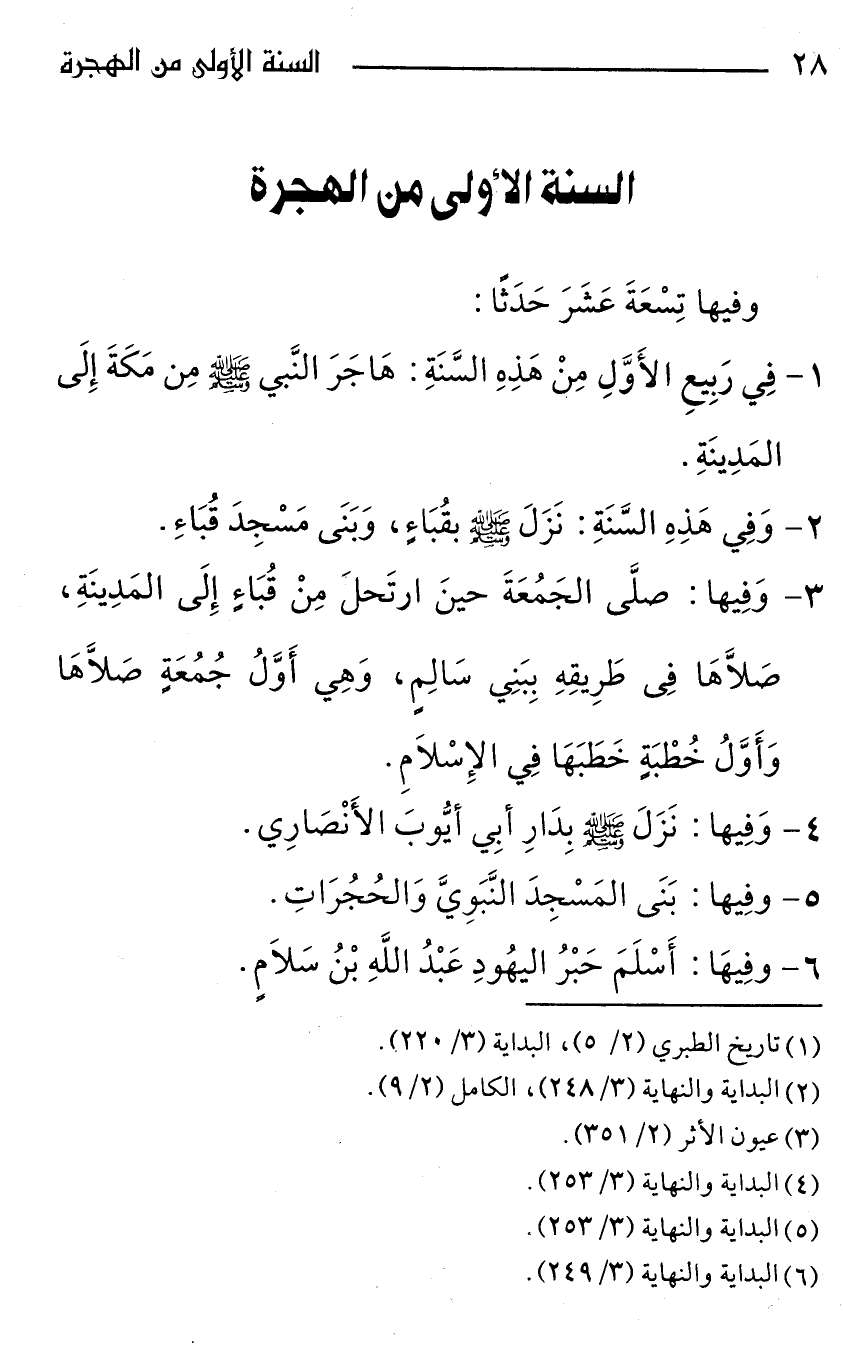 ٢٨ السنة الأولى من الهجرة
السنة الأولى من الهجرة
وفيها تِسْعَةَ عَشَرَ حَدَثًا :
١- فِي رَبِيعِ الأَوَّلِ مِنْ هَذِهِ السَّنَةِ : هَاجَرَ النَّبي ﷺ مِن مَكَةَ إِلَى
المَدِينَةِ .
٢- وَفِي هَذِهِ السَّنَةِ : نَزَلَ ﷺ بقُبَاءٍ، وَبَنَى مَسْجِدَ قُبَاءِ.
٣- وَفِيها : صلَّى الجَمُعَةَ حينَ ارتَحلَ مِنْ قُبَاءٍ إِلَى المَدِينَةِ،
صَلاَّهَا فِى طَرِيقِهِ بِبَنِي سَالِمٍ، وَهِي أَوَّلُ جُمُعَةٍ صَلاَّهَا
وَأَوَّلُ خُطْبَةٍ خَطَبَهَا فِي الإِسْلاَمِ.
٤- وَفِيها : نَزَلَ ﷺ بِدَارِ أبي أيُّوبَ الأَنْصَارِي.
٥- وفِيها : بَنَى المَسْجِدَ النَّبَوِيَّ وَالحُجُرَاتِ.
٦- وفِيهَا : أَسْلَمَ حَبْرُ اليهُودِ عَبْدُ اللَّهِ بْنُ سَلاَمٍ.
(١) تاريخ الطبري (٢/ ٥)، البداية (٣/ ٢٢٠).
(٢) البداية والنهاية (٣/ ٢٤٨)، الكامل (٢/ ٩).
(٣) عيون الأثر (٢/ ٣٥١).
(٤) البداية والنهاية (٣/ ٢٥٣).
(٥) البداية والنهاية (٣/ ٢٥٣).
(٦) البداية والنهاية (٣/ ٢٤٩).